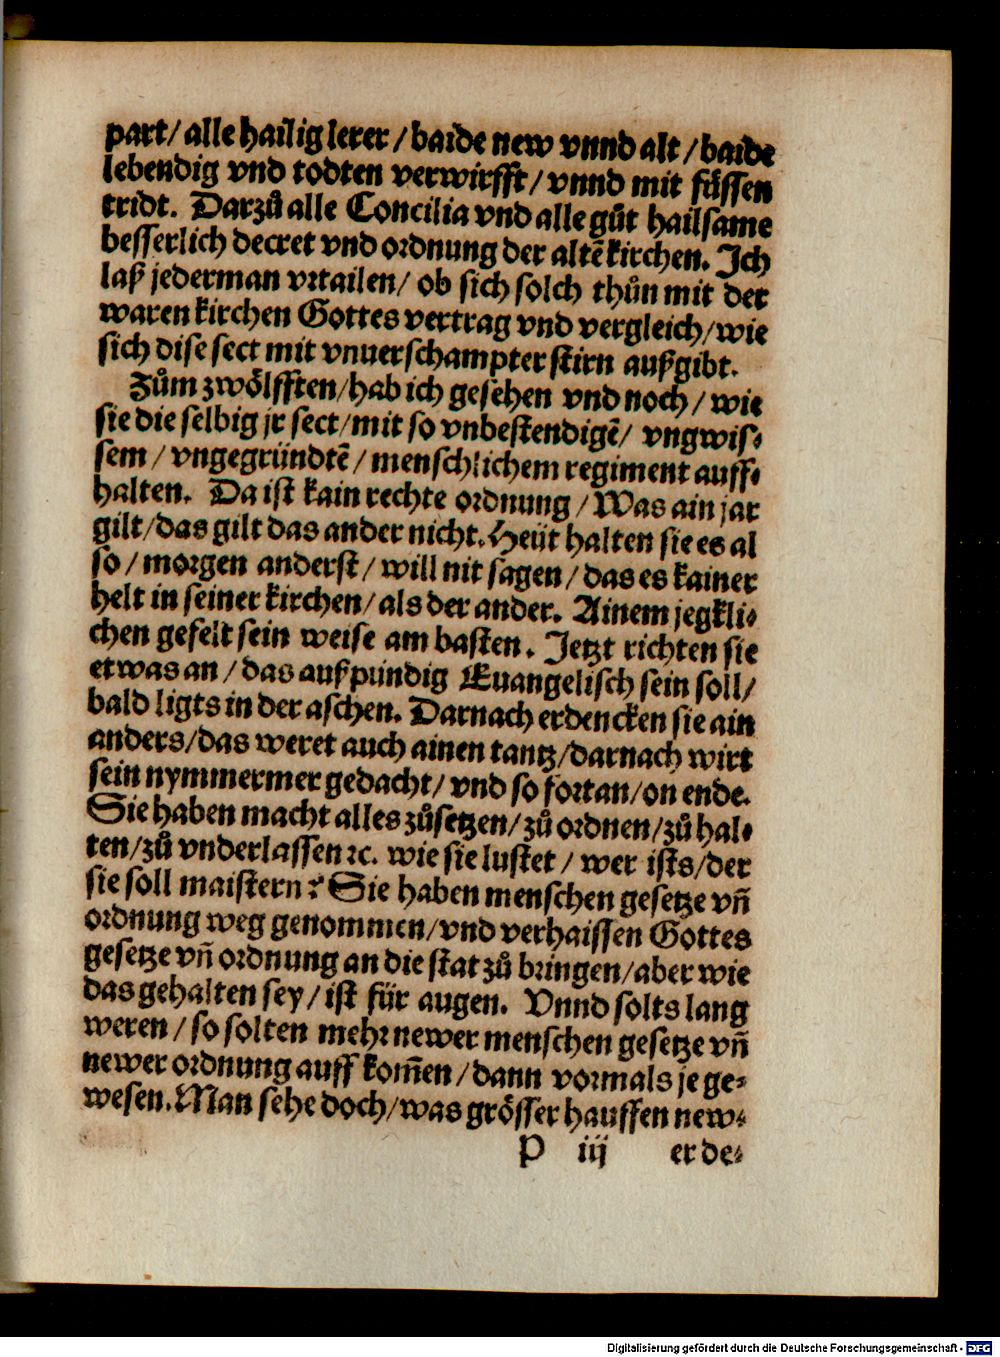 part/ alle hailig lerer / baide new vnnd alt / baide
lebendig vnd todten verwirfft/ vnnd mit fůssen
tridt. Darzů alle Concilia vnd alle gůt hailsame
besserlich decret vnd ordnung der altẽ kirchen. Ich
laß jederman vrtailen/ ob sich solch thůn mit der
waren kirchen Gottes vertrag vnd vergleich/wie
sich dise sect mit vnuerschampter stirn außgibt.
Zům zwölfften/hab ich gesehen vnd noch/ wie
sie die selbig jr sect/mit so vnbestendigẽ/ vngwis-
sem / vngegründtẽ / menschlichem regiment auff-
halten. Da ist kain rechte ordnung / Was ain jar
gilt/das gilt das ander nicht. Heüt halten sie es al
so / morgen anderst / will nit sagen / das es kainer
helt in seiner kirchen/ als der ander. Ainem jegkli-
chen gefelt sein weise am basten. Jetzt richten sie
etwas an / das außpündig Euangelisch sein soll/
bald ligts in der aschen. Darnach erdencken sie ain
anders/das weret auch ainen tantz/darnach wirt
sein nymmermer gedacht/ vnd so fortan/on ende.
Sie haben macht alles zůsetzen/ zů ordnen/zů hal-
ten/zů vnderlassen ꝛc. wie sie lustet / wer ists/der
sie soll maistern? Sie haben menschen gesetze vñ
ordnung weg genommen/vnd verhaissen Gottes
gesetze vñ ordnung an die stat zů bringen/aber wie
das gehalten sey/ ist für augen. Vnnd solts lang
weren / so solten mehr newer menschen gesetze vñ
newer ordnung auff kom̃en / dann vormals je ge-
wesen. Man sehe doch/was grösser hauffen new-
P iij er de-
Digitalisierung gefördert durch die Deutsche Forschungsgemeinschaft - DFG